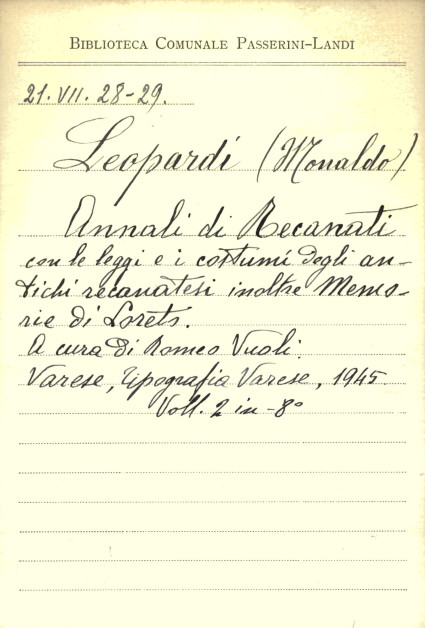 BIBLIOTECA COMUNALE PASSERINI-LANDI
21. VII. 28-29.
Leopardi (Monaldo)
Annali di Recanati
con le leggi e i costumi degli an-
tichi recanatesi inoltre Memo-
rie di Loreto.
A cura di Romeo Vuoli.
Varese, Tipografia Varese, 1945
Voll. 2 in-8°